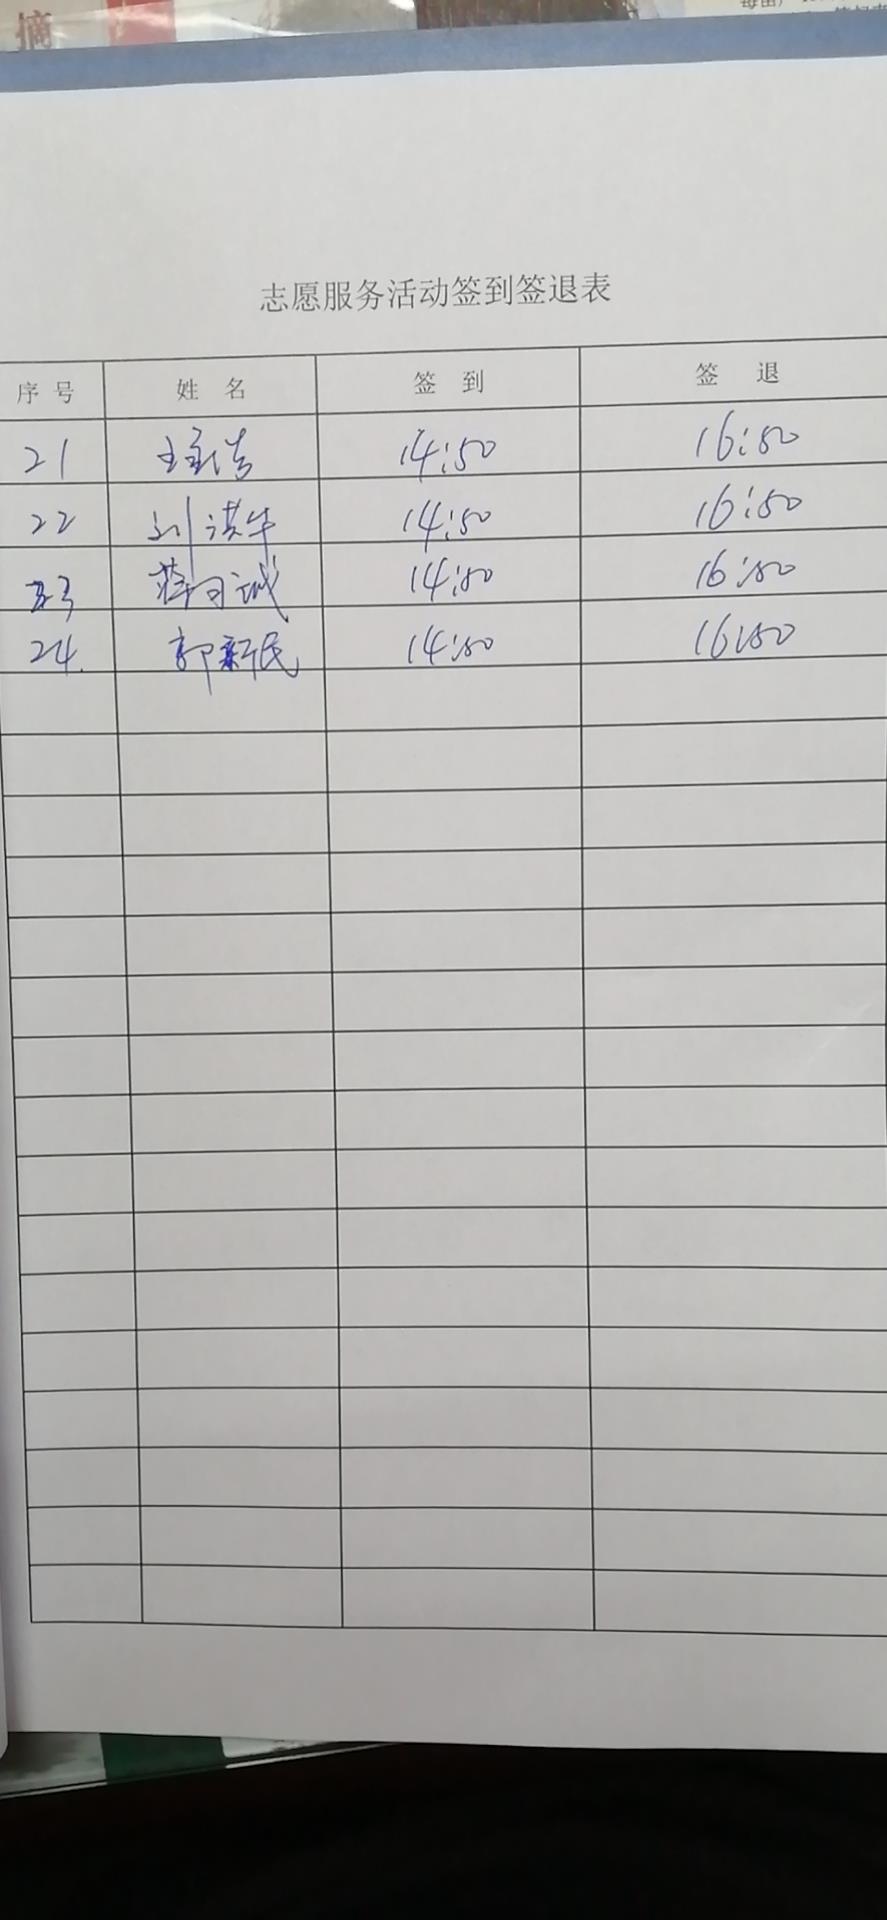 志愿服务活动签到签退表
序号 姓名 签到 签退
21 14:50 16:50
22 刘洪华 14:50 16:50
23 蒋日诚 14:50 16:50
24. 郭新民 14:50 16:50